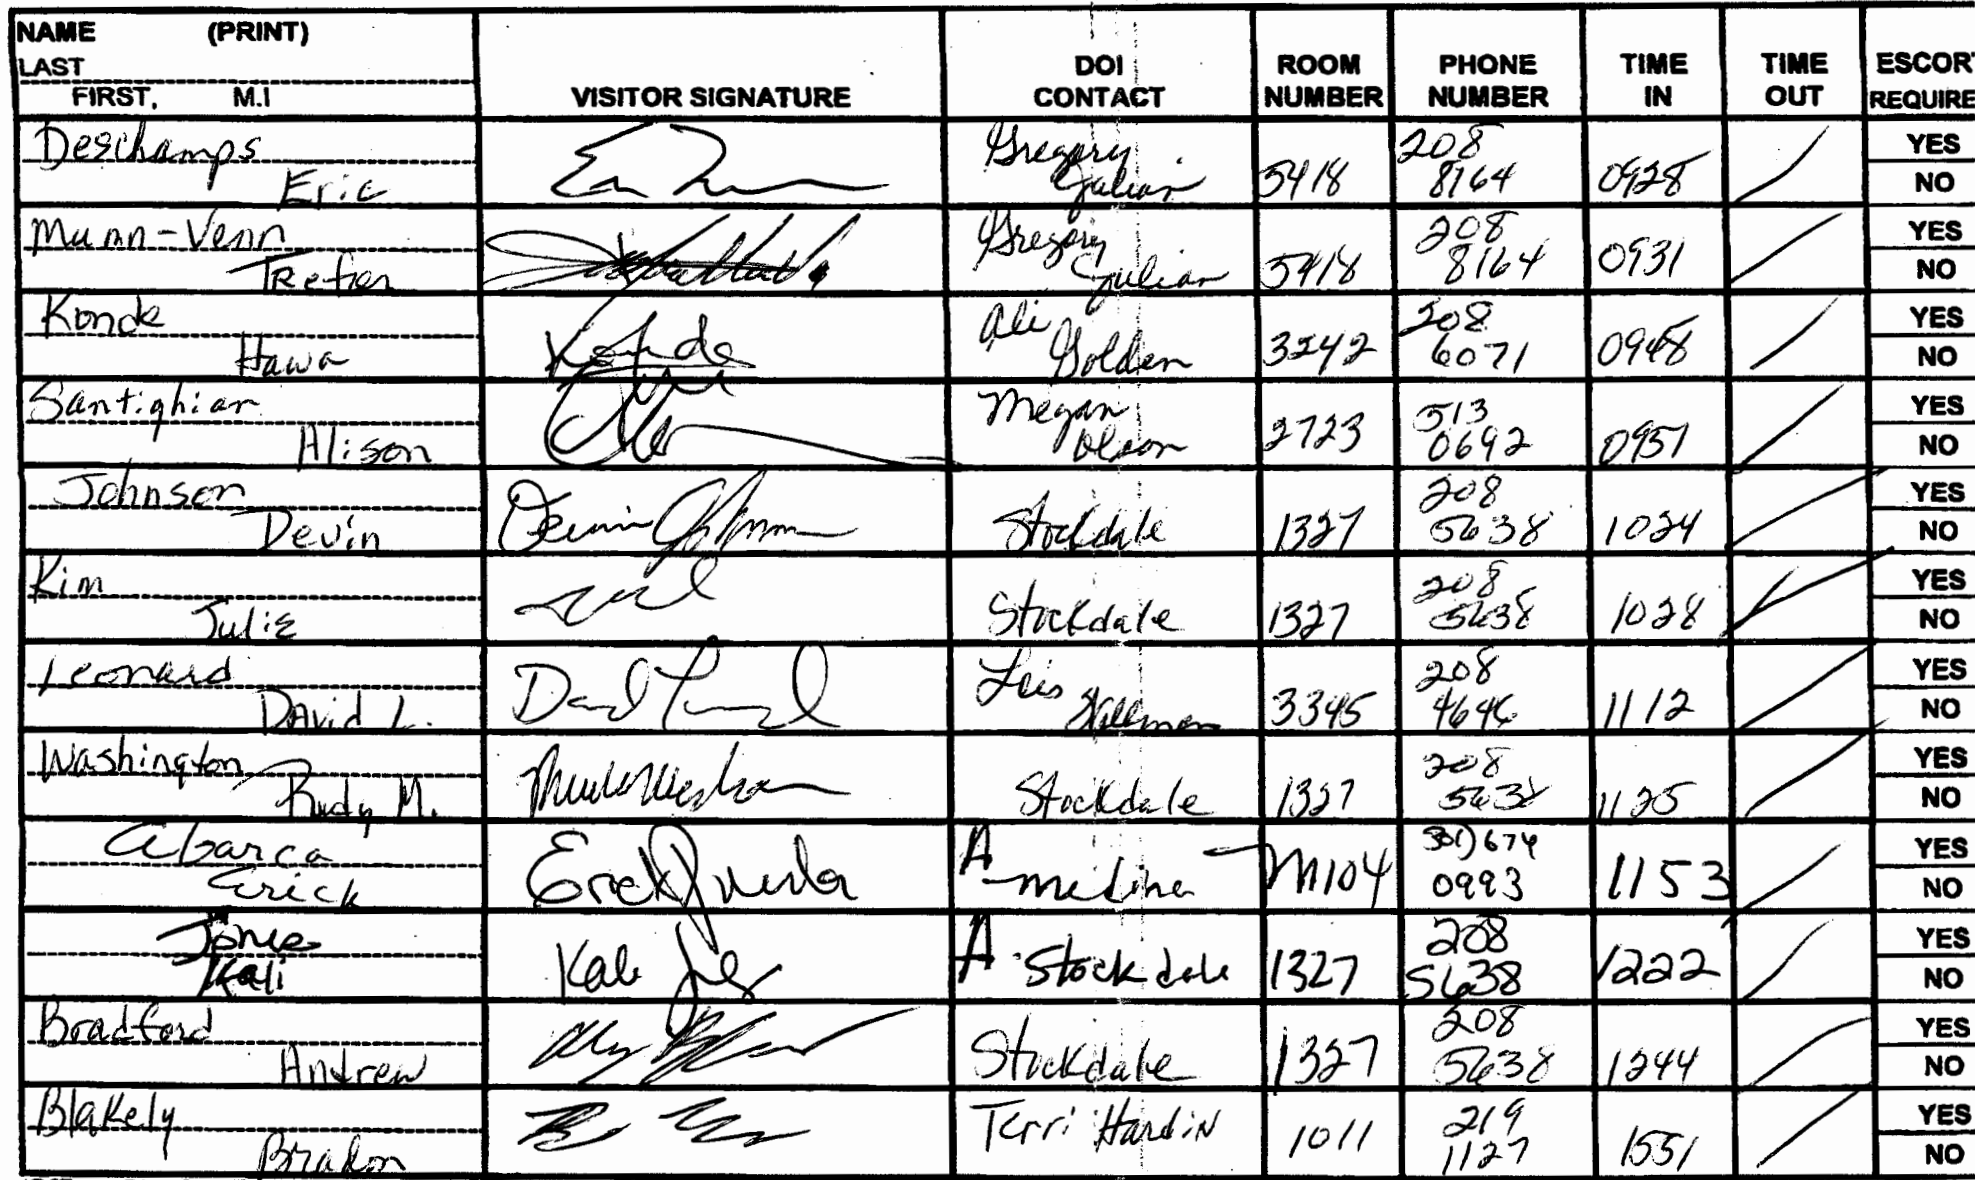 NAME (PRINT)
LAST
FIRST, M.I
VISITOR SIGNATURE
DOI CONTACT
ROOM NUMBER
PHONE NUMBER
TIME IN
TIME OUT
ESCORT
REQUIRE
Deschamps
Eric
Gregory
Julian
5418
208
8164
0928
YES
NO
Munn-Venn
Trefor
Gregory
Julian
5418
208
8164
0931
YES
NO
Konde
Hawa
Konde
Ali
Golden
3242
208
6071
0948
YES
NO
Santighian
Alison
Megan
Olson
2723
513
0692
0957
YES
NO
Johnson
Devin
Devin Johnson
Stockdale
1327
208
5638
1024
YES
NO
Kim
Julie
Stockdale
1327
208
5638
1028
YES
NO
Leonard
David L.
Lois
3345
208
4646
1112
YES
NO
Washington
Rudy M.
Stockdale
1327
208
5638
1125
YES
NO
Abarca
Erick
Erick
A
Medina
M104
301) 674
0993
1153
YES
NO
Jones
Kali
Kali
A
Stockdale
1327
208
5638
1222
YES
NO
Bradford
Andrew
Stockdale
1327
208
5638
1244
YES
NO
Blakely
Bradon
Terri Hardin
1011
219
1127
1551
YES
NO